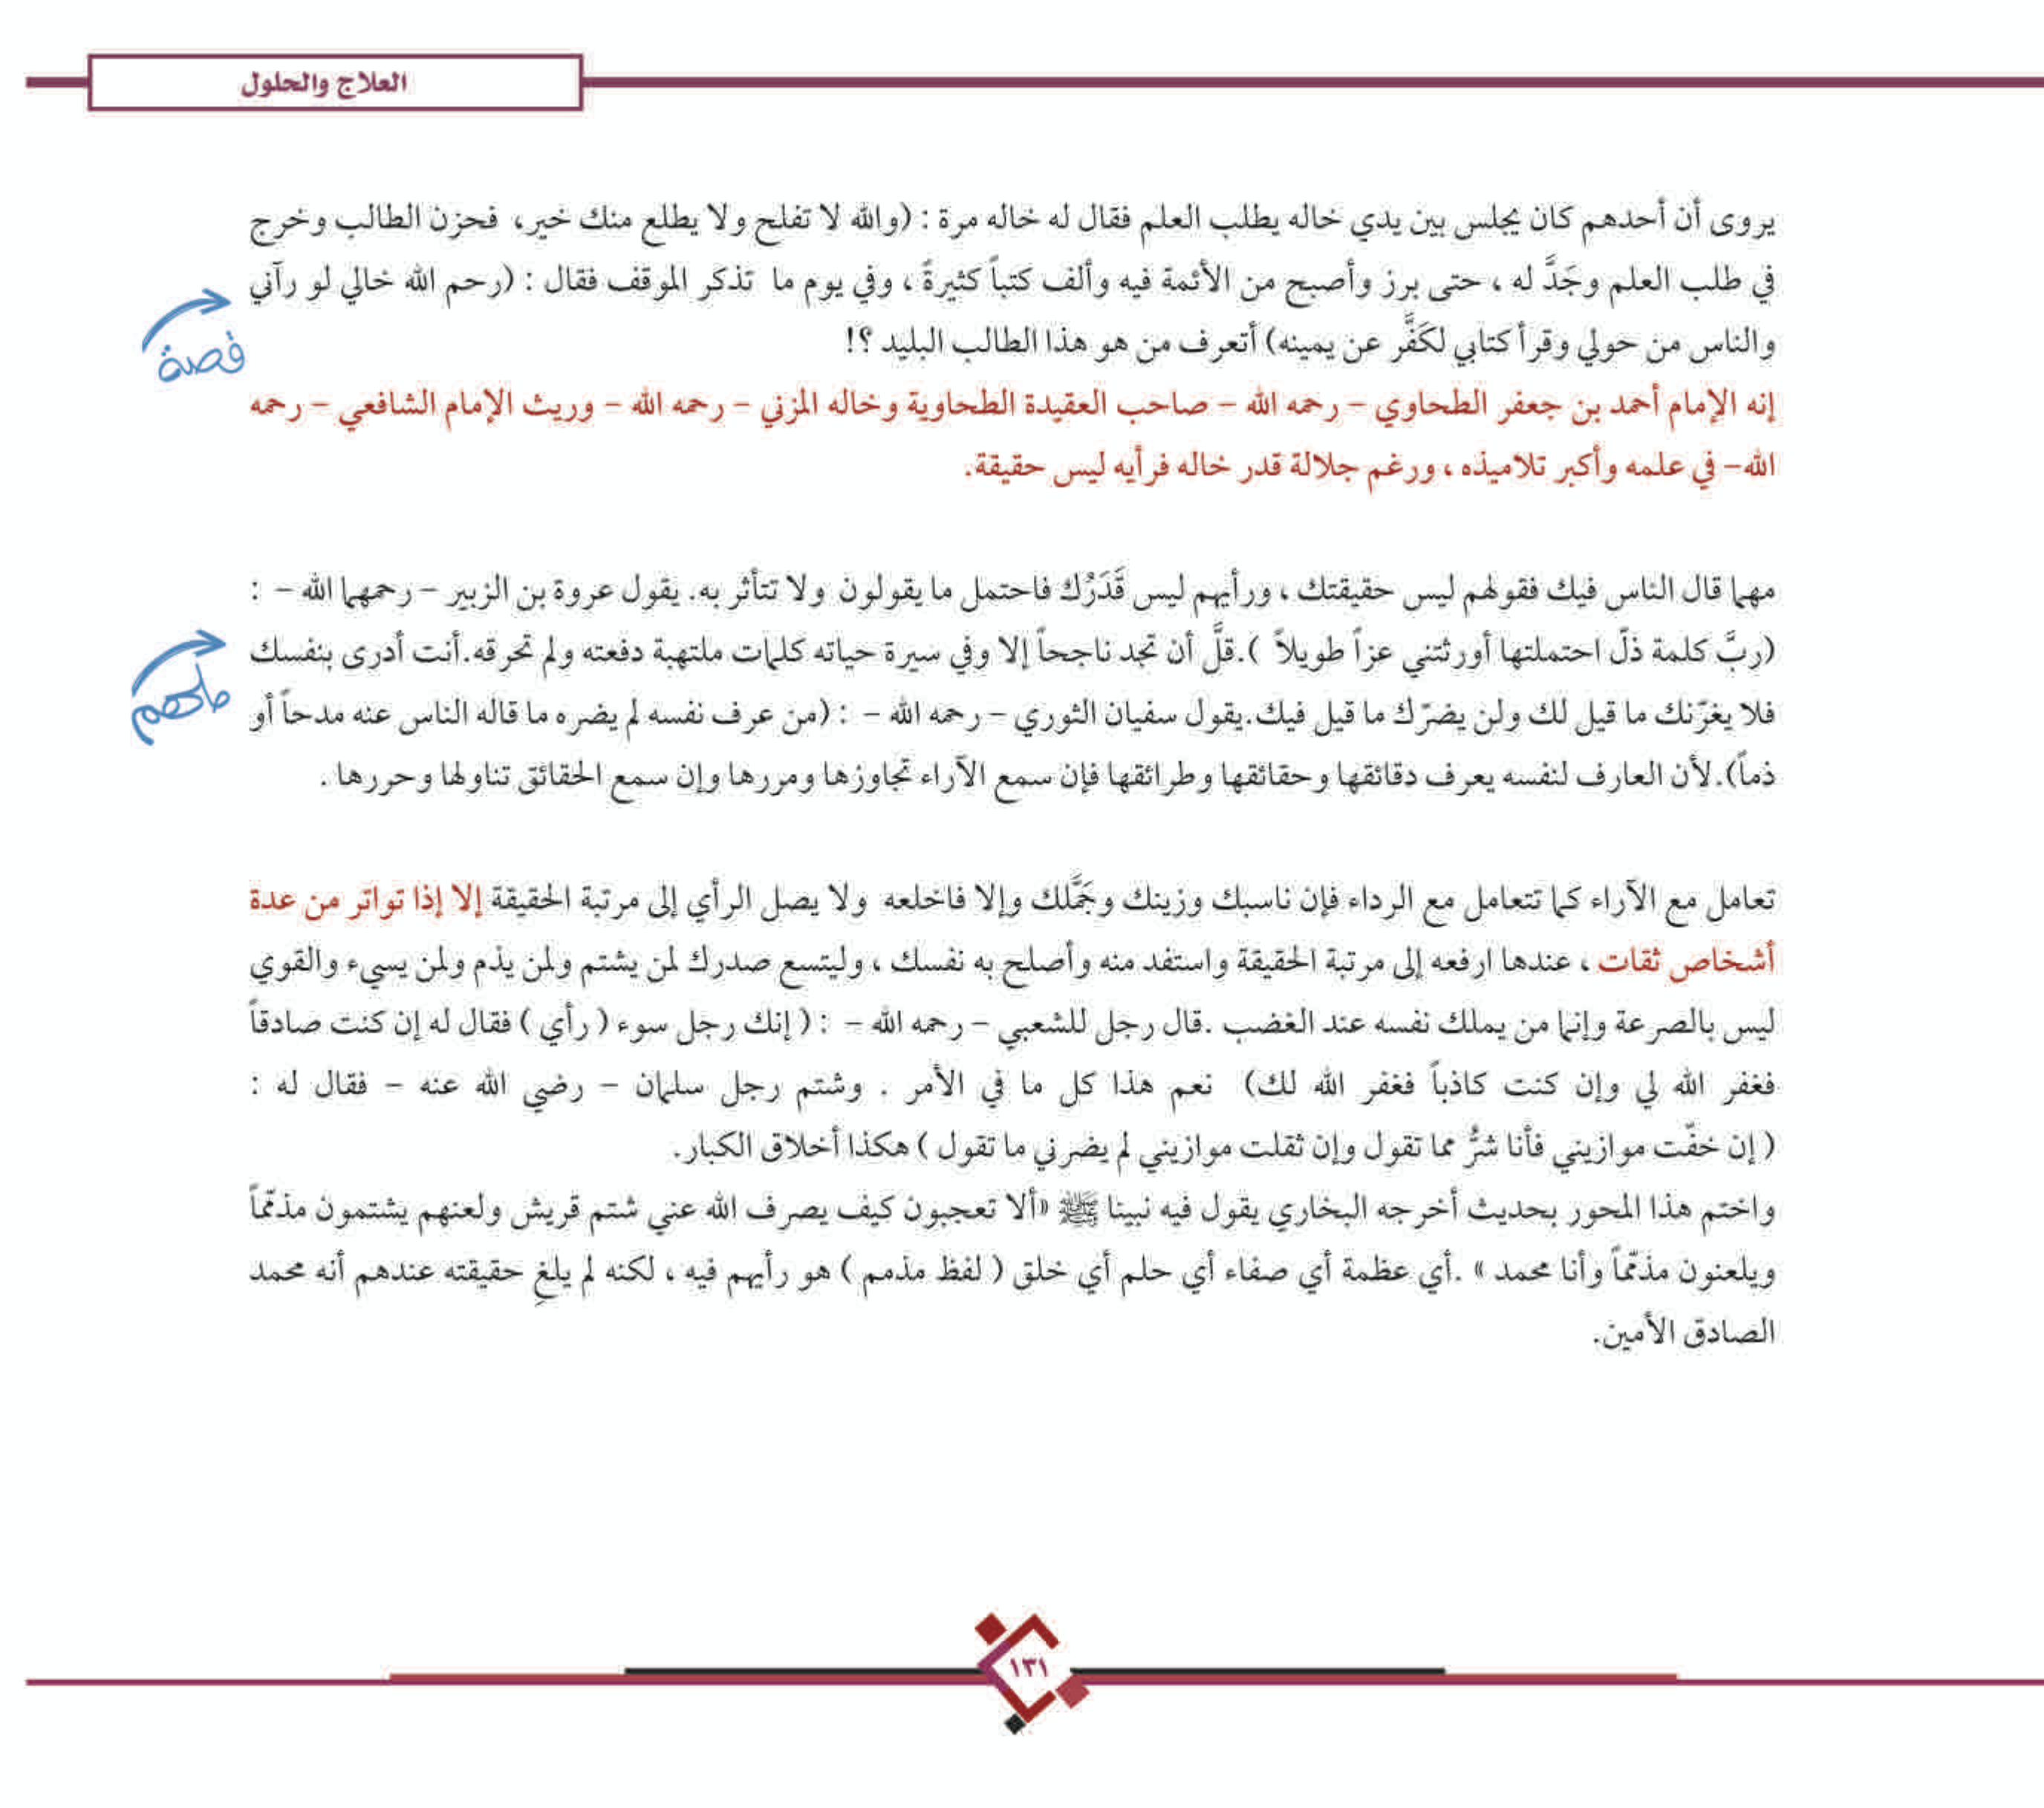 العلاج والحلول
يروى أن أحدهم كان يجلس بين يدي خاله يطلب العلم فقال له خاله مرة : (والله لا تفلح ولا يطلع منك خير، فحزن الطالب وخرج
في طلب العلم وجَدَّ له ، حتى برز وأصبح من الأئمة فيه وألف كتباً كثيرةً ، وفي يوم ما تذكر الموقف فقال : (رحم الله خالي لو رآني
والناس من حولي وقرأ كتابي لكَفَّر عن يمينه) أتعرف من هو هذا الطالب البليد ؟!
قصة
إنه الإمام أحمد بن جعفر الطحاوي – رحمه الله – صاحب العقيدة الطحاوية وخاله المزني – رحمه الله – وريث الإمام الشافعي – رحمه
الله– في علمه وأكبر تلاميذه ، ورغم جلالة قدر خاله فرأيه ليس حقيقة.
مهما قال الناس فيك فقولهم ليس حقيقتك ، ورأيهم ليس قَدَرُك فاحتمل ما يقولون ولا تتأثر به. يقول عروة بن الزبير – رحمهما الله – :
(ربَّ كلمة ذلّ احتملتها أورثتني عزاً طويلاً ).قلَّ أن تجد ناجحاً إلا وفي سيرة حياته كلمات ملتهبة دفعته ولم تحرقه.أنت أدرى بنفسك
ملهم
فلا يغرّنك ما قيل لك ولن يضرّك ما قيل فيك.يقول سفيان الثوري – رحمه الله – : (من عرف نفسه لم يضره ما قاله الناس عنه مدحاً أو
ذماً).لأن العارف لنفسه يعرف دقائقها وحقائقها وطرائقها فإن سمع الآراء تجاوزها ومررها وإن سمع الحقائق تناولها وحررها .
تعامل مع الآراء كما تتعامل مع الرداء فإن ناسبك وزينك وجَمَّلك وإلا فاخلعه ولا يصل الرأي إلى مرتبة الحقيقة إلا إذا تواتر من عدة
أشخاص ثقات ، عندها ارفعه إلى مرتبة الحقيقة واستفد منه وأصلح به نفسك ، وليتسع صدرك لمن يشتم ولمن يذم ولمن يسيء والقوي
ليس بالصرعة وإنما من يملك نفسه عند الغضب .قال رجل للشعبي – رحمه الله – : ( إنك رجل سوء ( رأي ) فقال له إن كنت صادقاً
فغفر الله لي وإن كنت كاذباً فغفر الله لك) نعم هذا كل ما في الأمر . وشتم رجل سلمان – رضي الله عنه – فقال له :
( إن خفّت موازيني فأنا شرُّ مما تقول وإن ثقلت موازيني لم يضرني ما تقول ) هكذا أخلاق الكبار.
واختم هذا المحور بحديث أخرجه البخاري يقول فيه نبينا ﷺ «ألا تعجبون كيف يصرف الله عني شتم قريش ولعنهم يشتمون مذمّماً
ويلعنون مذمّماً وأنا محمد » .أي عظمة أي صفاء أي حلم أي خلق ( لفظ مذمم ) هو رأيهم فيه ، لكنه لم يلغِ حقيقته عندهم أنه محمد
الصادق الأمين.
١٣١